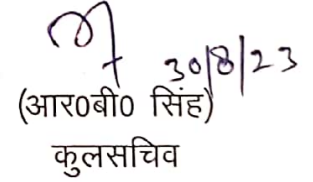 30/8/23
(आर0बी0 सिंह)
कुलसचिव